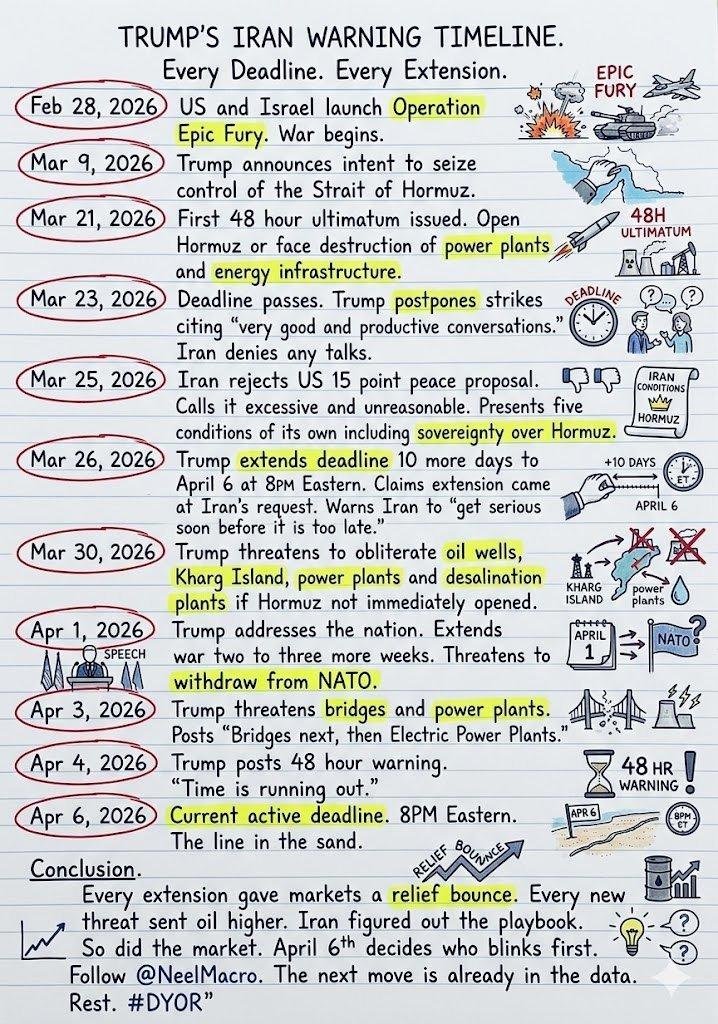 TRUMP'S IRAN WARNING TIMELINE.
Every Deadline. Every Extension.
Feb 28, 2026
US and Israel launch Operation
Epic Fury. War begins.
EPIC
FURY
Mar 9, 2026
Trump announces intent to seize
control of the Strait of Hormuz.
Mar 21, 2026
First 48 hour ultimatum issued. Open
Hormuz or face destruction of power plants
and energy infrastructure.
48H
ULTIMATUM
Mar 23, 2026
Deadline passes. Trump postpones strikes
citing “very good and productive conversations.”
Iran denies any talks.
DEADLINE
? ... ?
Mar 25, 2026
Iran rejects US 15 point peace proposal.
Calls it excessive and unreasonable. Presents five
conditions of its own including sovereignty over Hormuz.
IRAN
CONDITIONS
HORMUZ
Mar 26, 2026
Trump extends deadline 10 more days to
April 6 at 8PM Eastern. Claims extension came
at Iran's request. Warns Iran to “get serious
soon before it is too late.”
+10 DAYS
ET
APRIL 6
Mar 30, 2026
Trump threatens to obliterate oil wells,
Kharg Island, power plants and desalination
plants if Hormuz not immediately opened.
KHARG
ISLAND
power
plants
Apr 1, 2026
SPEECH
Trump addresses the nation. Extends
war two to three more weeks. Threatens to
withdraw from NATO.
APRIL
1
NATO?
Apr 3, 2026
Trump threatens bridges and power plants.
Posts “Bridges next, then Electric Power Plants.”
Apr 4, 2026
Trump posts 48 hour warning.
“Time is running out.”
48 HR
WARNING !
Apr 6, 2026
Current active deadline. 8PM Eastern.
The line in the sand.
APR 6
8PM
ET
Conclusion.
RELIEF BOUNCE
Every extension gave markets a relief bounce. Every new
threat sent oil higher. Iran figured out the playbook.
So did the market. April 6th decides who blinks first.
Follow @NeelMacro. The next move is already in the data.
Rest. #DYOR”
?
?